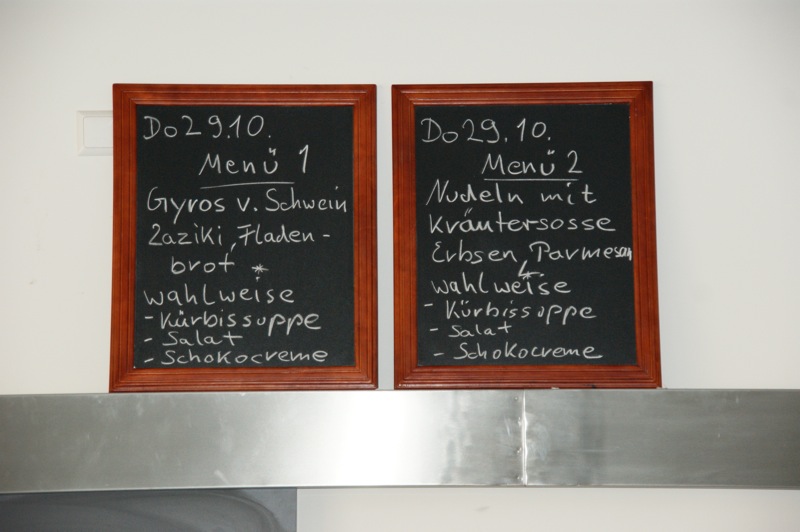 Do 29.10.
Menü 1
Gyros v. Schwein
Zaziki, Fladen-
brot *
wahlweise
- Kürbissuppe
- Salat
- Schokocreme
Do 29.10.
Menü 2
Nudeln mit
Kräutersosse
Erbsen, Parmesan
wahlweise
- Kürbissuppe
- Salat
- Schokocreme